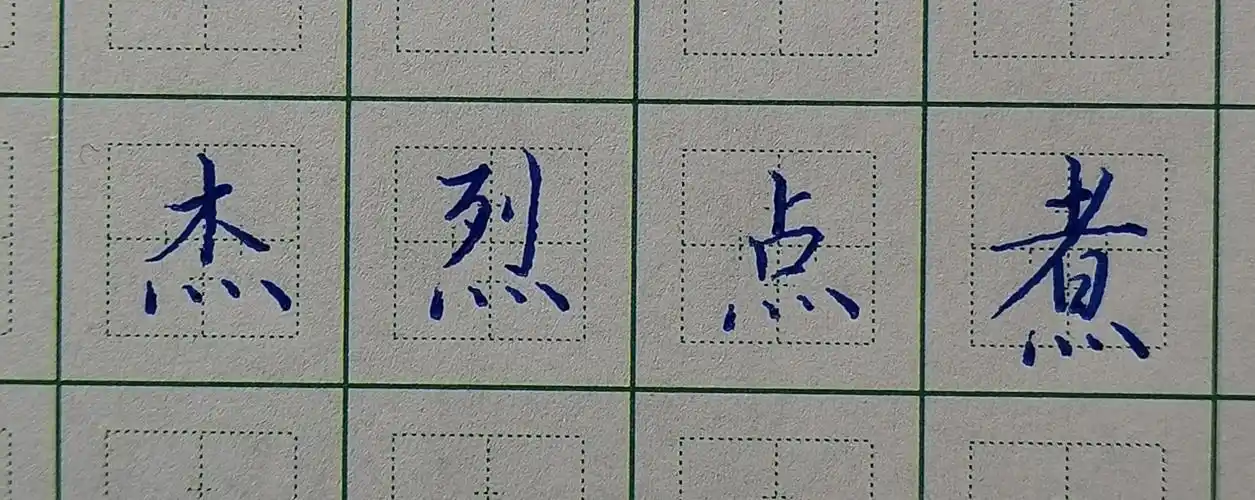 杰烈点煮